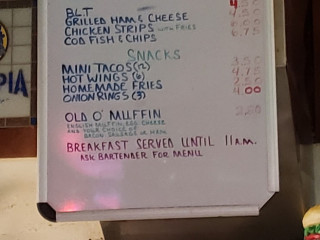 BLT 4.50
GRILLED HAM & CHEESE 4.50
CHICKEN STRIPS WITH FRIES 6.00
COD FISH & CHIPS 6.75
SNACKS
MINI TACOS (12) 3.50
HOT WINGS (6) 4.75
HOMEMADE FRIES 2.50
ONION RINGS (3) 4.00
OLD O' MUFFIN 2.50
ENGLISH MUFFIN, EGG, CHEESE
AND YOUR CHOICE OF
BACON SAUSAGE OR HAM
BREAKFAST SERVED UNTIL 11am.
ASK BARTENDER FOR MENU
PIA